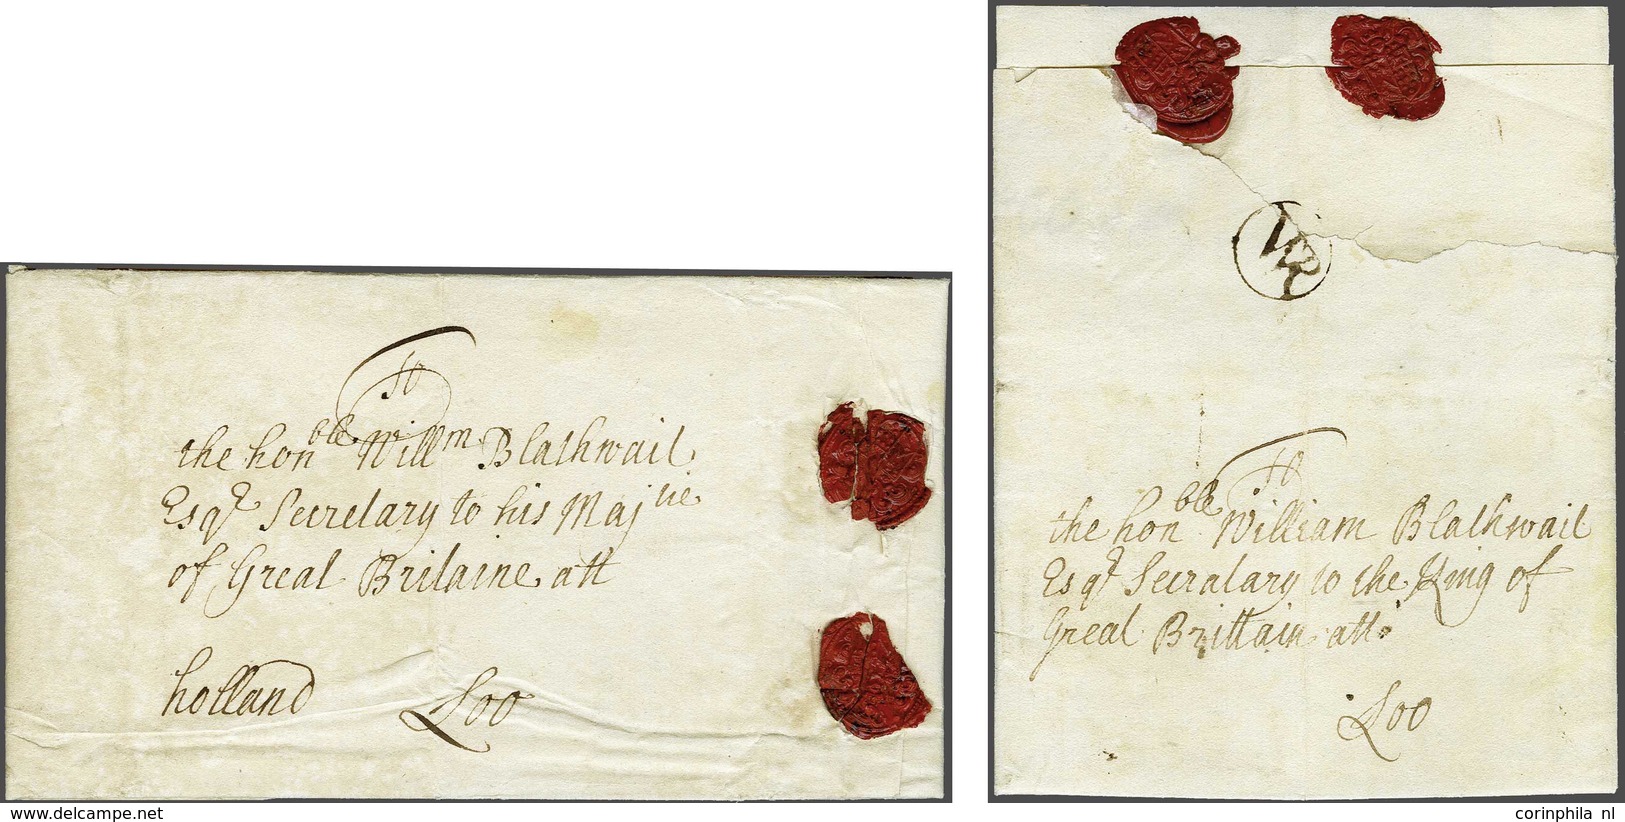 To
the hon^ble Will^m Blathwait
Esq^r Secretary to his Maj^tie
of Great Britaine att
holland Loo
To
the hon^ble William Blathwait
Esq^r Secratary to the King of
Great Brittain att
Loo
delcampe.net
corinphila nl